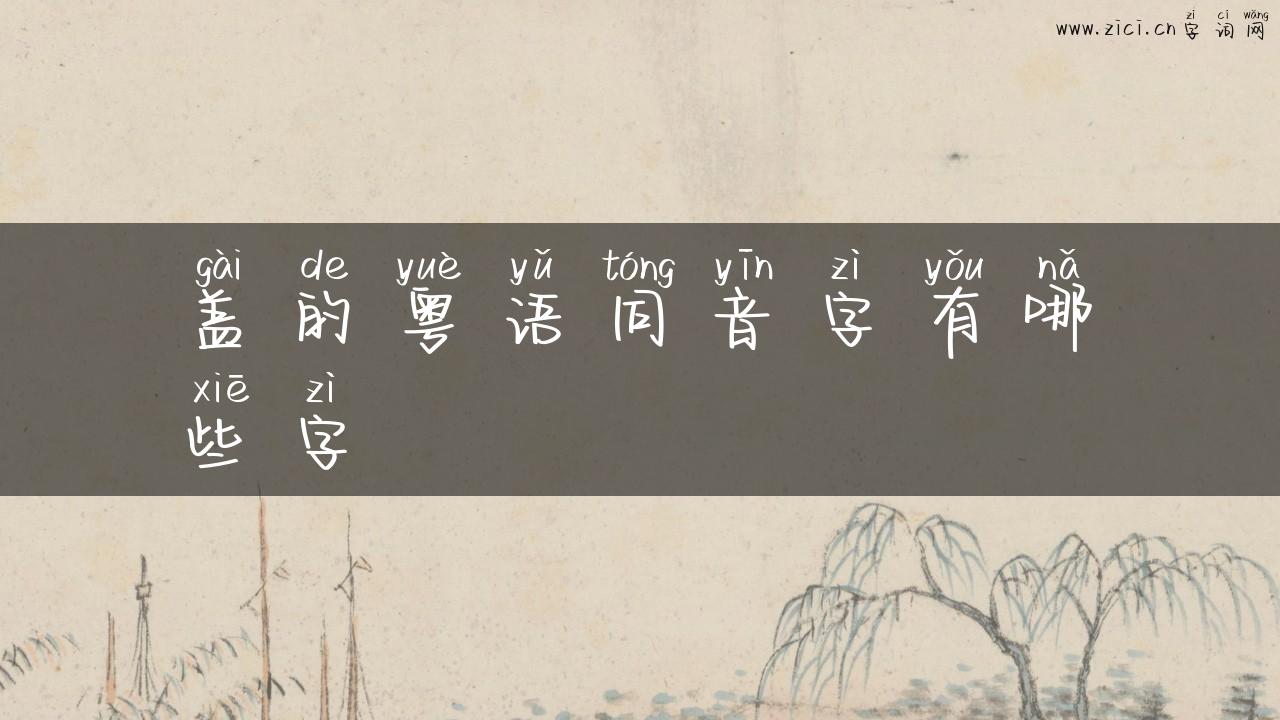 zì cí wǎng
www.zici.cn 字词网
gài de yuè yǔ tóng yīn zì yǒu nǎ
盖的粤语同音字有哪
xiē zì
些字